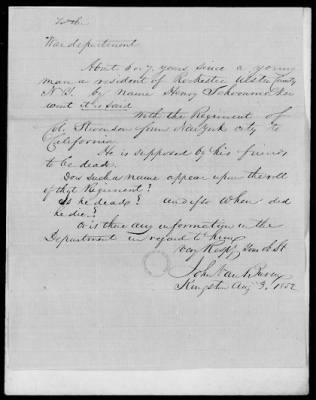 To the
War department
About 6 or 7 years since a young
man a resident of Rochester Ulster County
N.Y. by name Henry Schoonmaker
went it is said
with the Regiment of
Col. Stevenson from New York city to
California
He is supposed by his friends
to be dead.
Does such a name appear upon the roll
of that Regiment?
Is he dead? and if so when did
he die?
Or is there any information in the
Department in regard to him
Very Respy Your ob St
John Van Buren
Kingston Aug 3, 1852